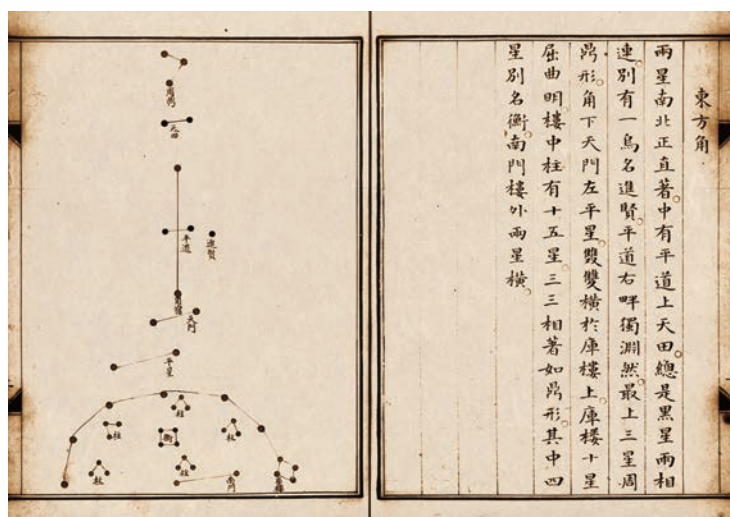 東方角
兩星南北正直著。中有平道上天田。總是黑星兩相
連。別有一烏名進賢。平道右畔獨淵然。最上三星周
鼎形。角下天門左平星。雙雙橫於庫樓上。庫樓十星
屈曲明。樓中柱有十五星。三三相著如鼎形。其中四
星別名衡。南門樓外兩星橫。
周鼎
天田
進賢
平道
角宿
天門
平星
柱
柱
柱
衡
柱
柱
南門
庫樓